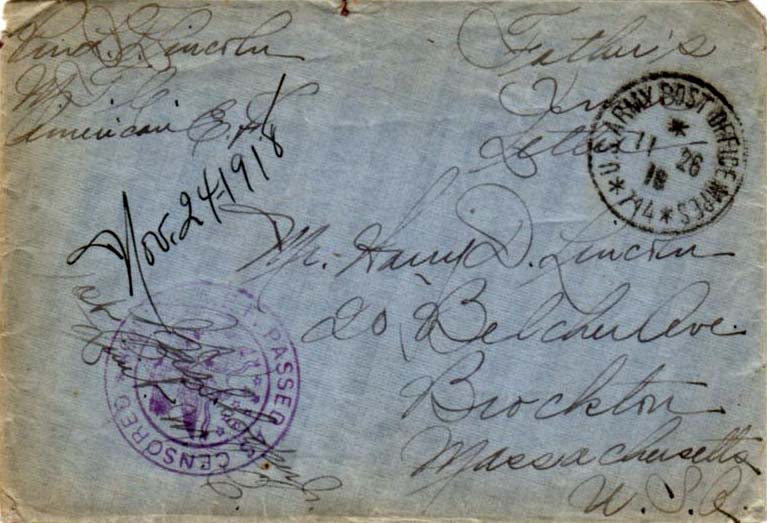 L. Lincoln
American E. F.
Father's
Letter
Nov. 24-1918
U.S. ARMY POST OFFICE M.P.E.S.
11 26
18
* 744 *
Mr. Harry D. Lincoln
20, Belcher Ave.
Brockton
Massachusetts
U. S. A.
PASSED
CENSORED